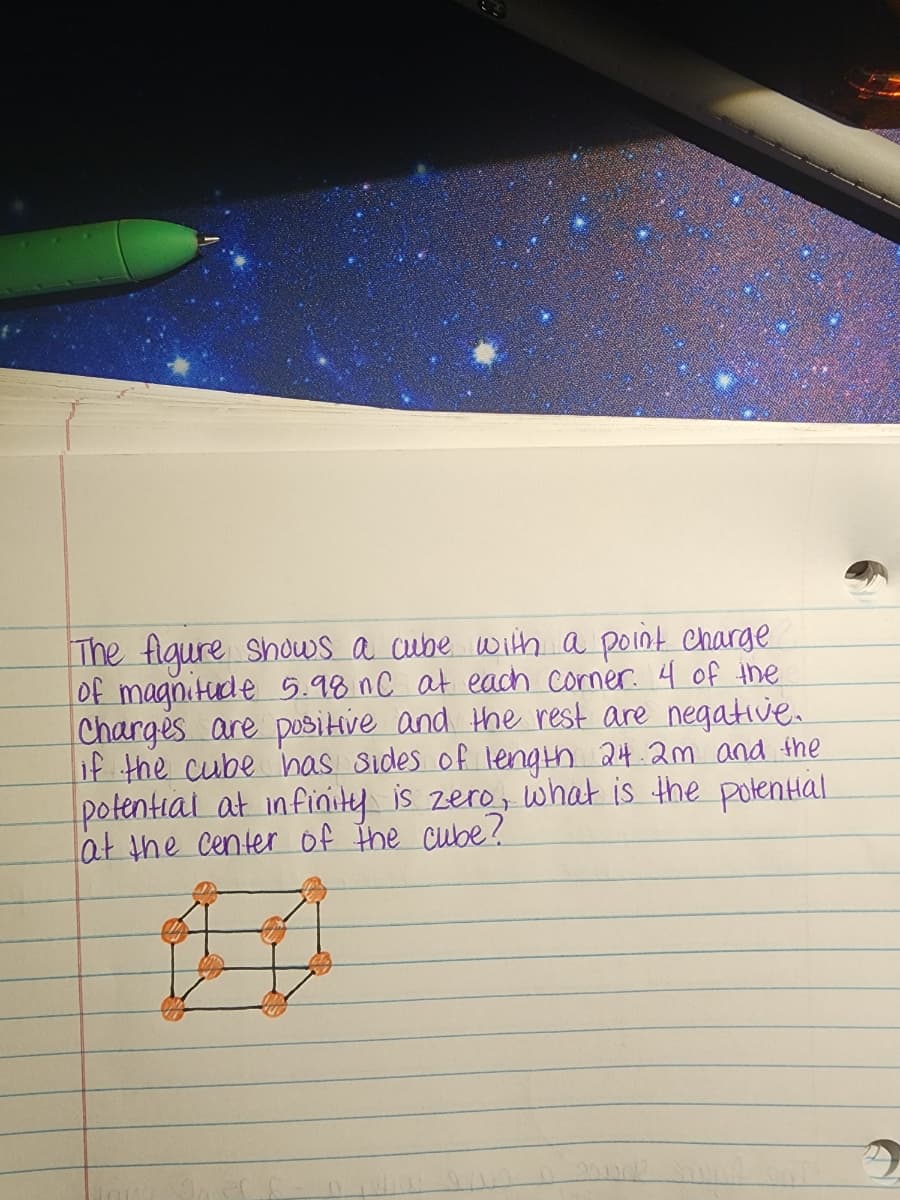 The figure shows a cube with a point charge
of magnitude 5.98 nC at each corner. 4 of the
Charges are positive and the rest are negative.
if the cube has sides of length 24.2m and the
potential at infinity is zero, what is the potential
at the center of the cube?